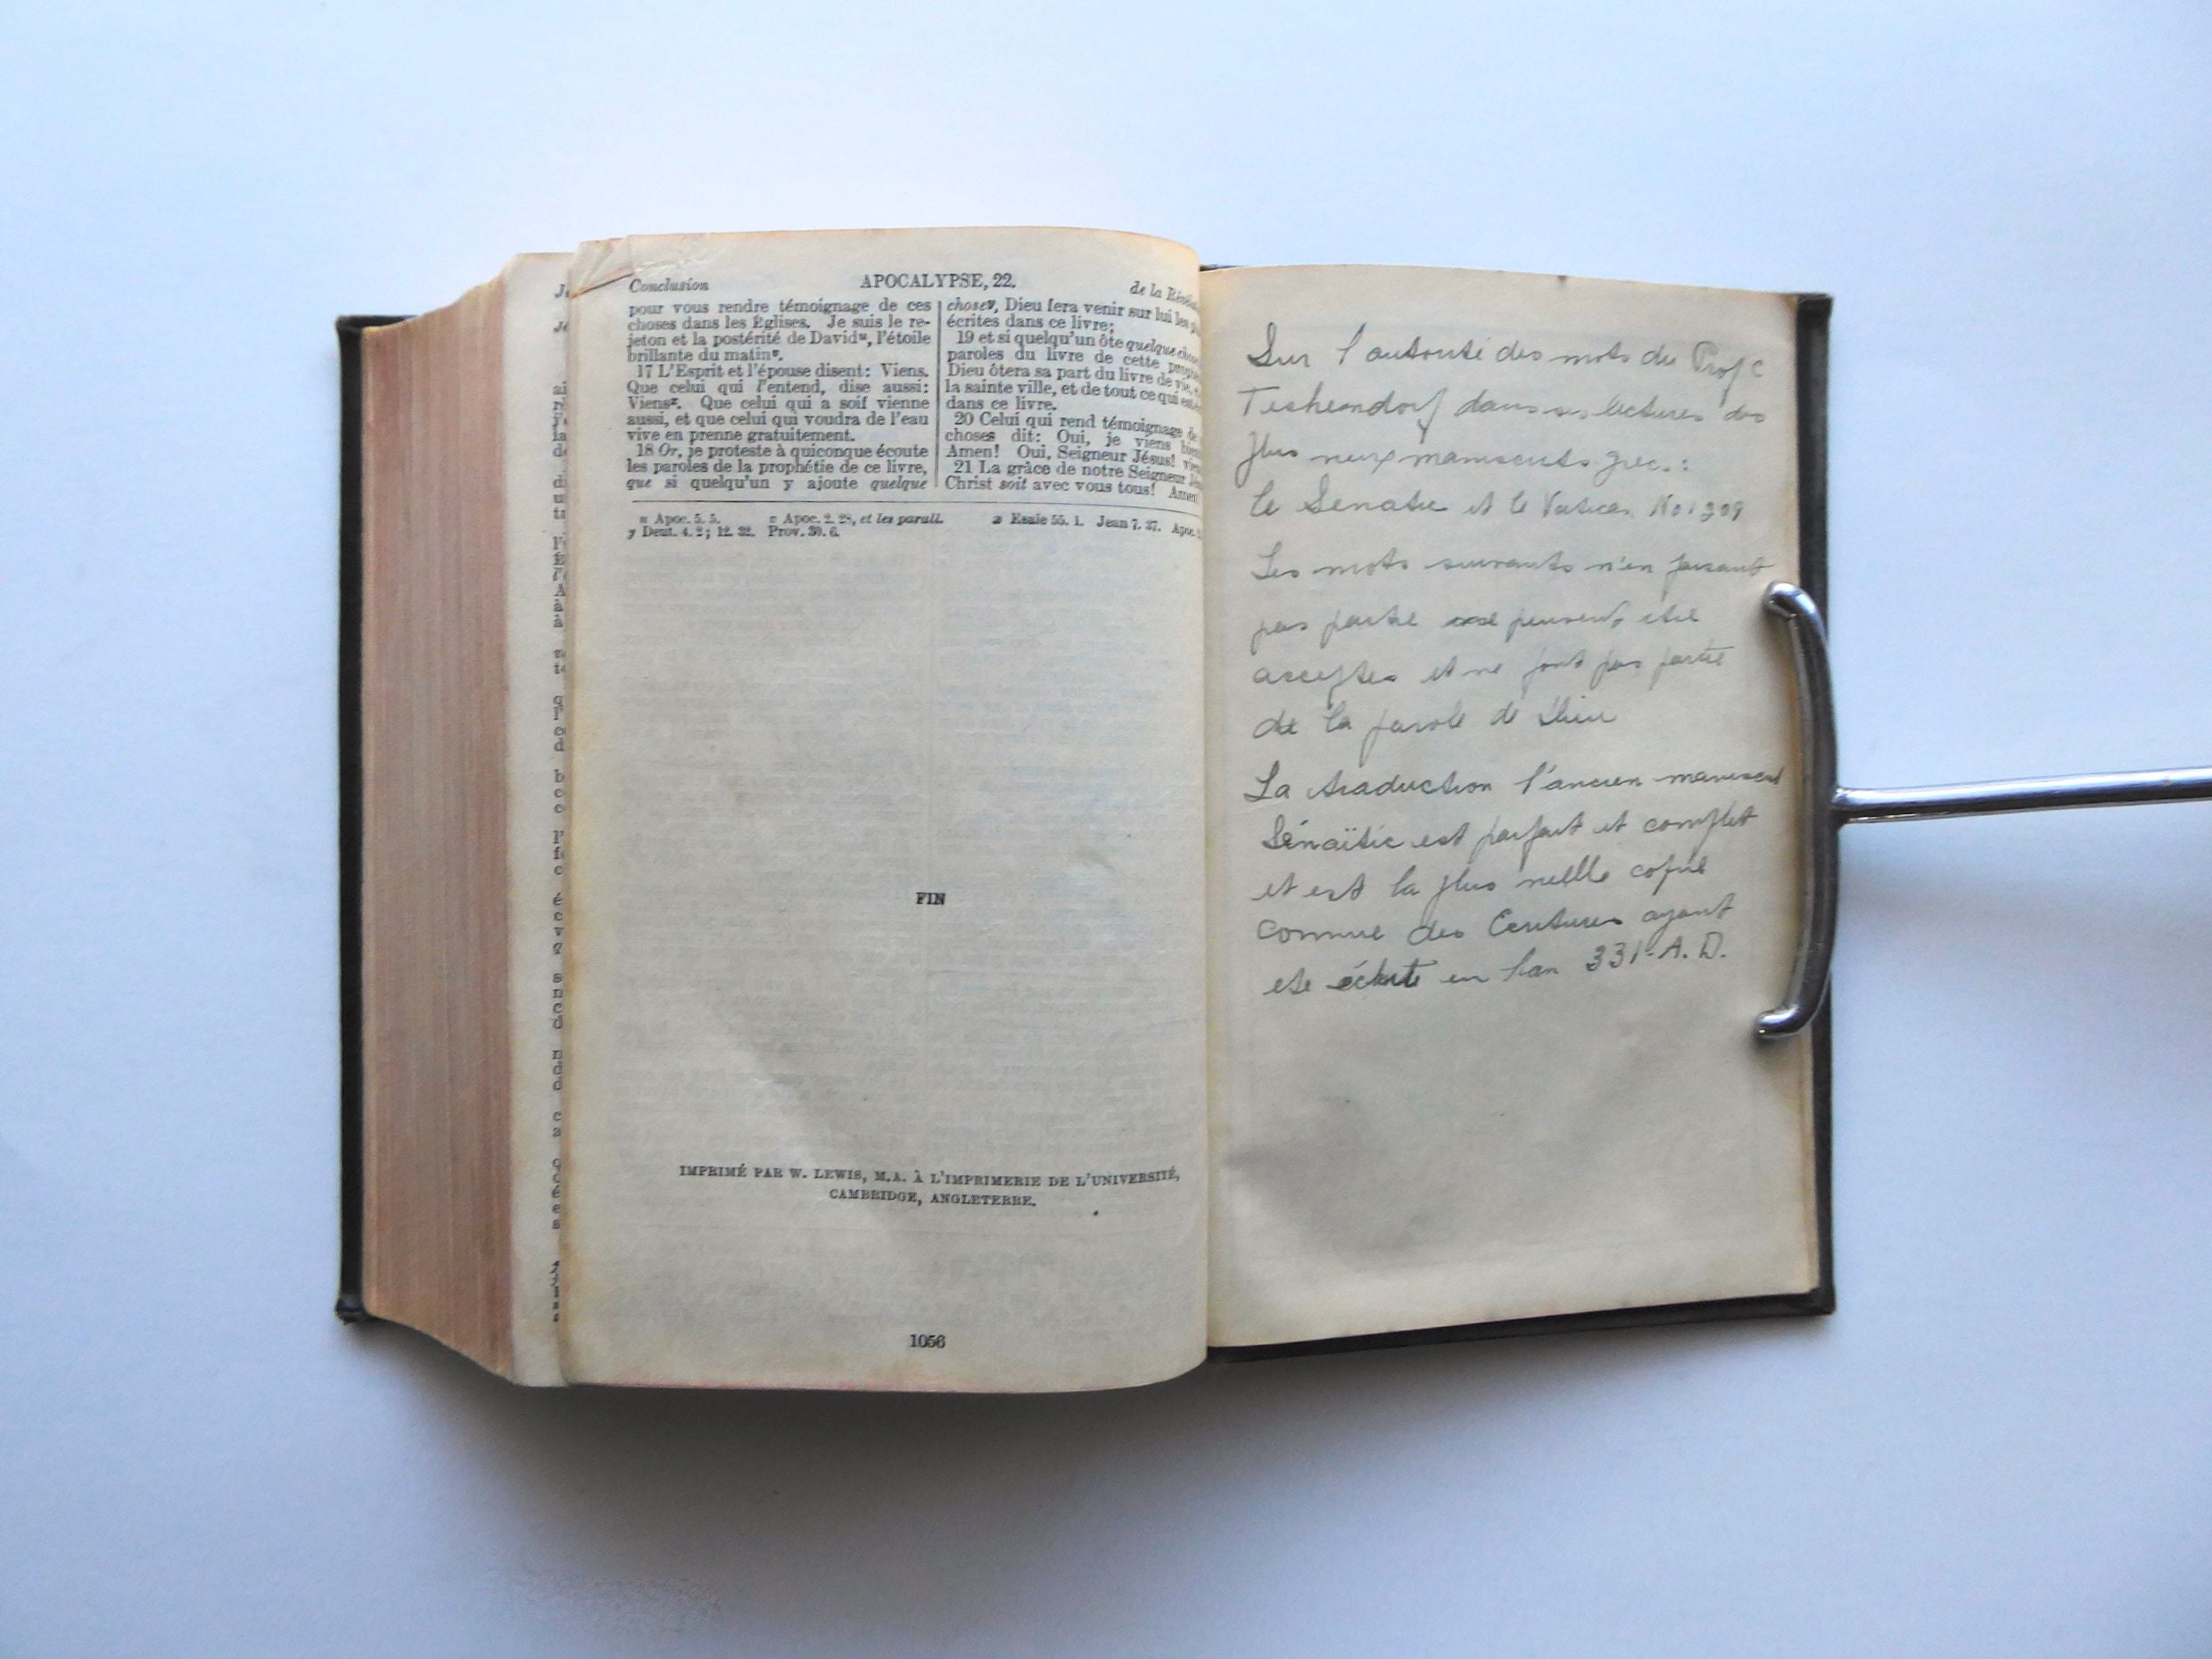 Conclusion
APOCALYPSE, 22.
de la
pour vous rendre témoignage de ces
choses dans les Églises. Je suis le re-
jeton et la postérité de Davidᵘ, l'étoile
brillante du matinᵛ.
17 L'Esprit et l'épouse disent: Viens.
Que celui qui l'entend, dise aussi:
Viensˣ. Que celui qui a soif vienne
aussi, et que celui qui voudra de l'eau
vive en prenne gratuitement.
18 Or, je proteste à quiconque écoute
les paroles de la prophétie de ce livre,
que si quelqu'un y ajoute quelque
choseʸ, Dieu fera venir sur lui les
écrites dans ce livre;
19 et si quelqu'un ôte quelque
paroles du livre de cette
Dieu ôtera sa part du livre de vie,
la sainte ville, et de tout ce qui
dans ce livre.
20 Celui qui rend témoignage de
choses dit: Oui, je viens
Amen! Oui, Seigneur Jésus!
21 La grâce de notre Seigneur
Christ soit avec vous tous! Amen
u Apoc. 5. 5. v Apoc. 2. 28, et les parall. x Esaïe 55. 1. Jean 7. 37. Apoc.
y Deut. 4. 2; 12. 32. Prov. 30. 6.
FIN
IMPRIMÉ PAR W. LEWIS, M.A. À L'IMPRIMERIE DE L'UNIVERSITÉ,
CAMBRIDGE, ANGLETERRE.
1056
Sur l'autorité des mots du Prof C
Teshendorf dans ses lectures des
plus vieux manuscrits grec.:
le Senatic et le Vatican No 1209
Les mots suivants n'en faisant
pas partie ne peuvent être
acceptes et ne font pas partie
de la parole de Dieu
La traduction l'ancien manuscrit
Sénaïtic est parfait et complet
et est la plus copie
connue des Ecritures ayant
ete écrite en l'an 331 A.D.